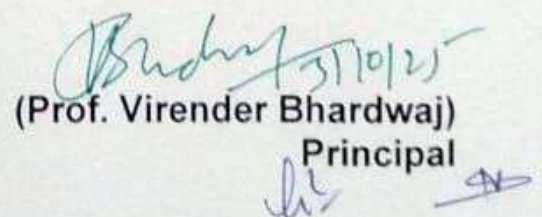 31/10/25
(Prof. Virender Bhardwaj)
Principal